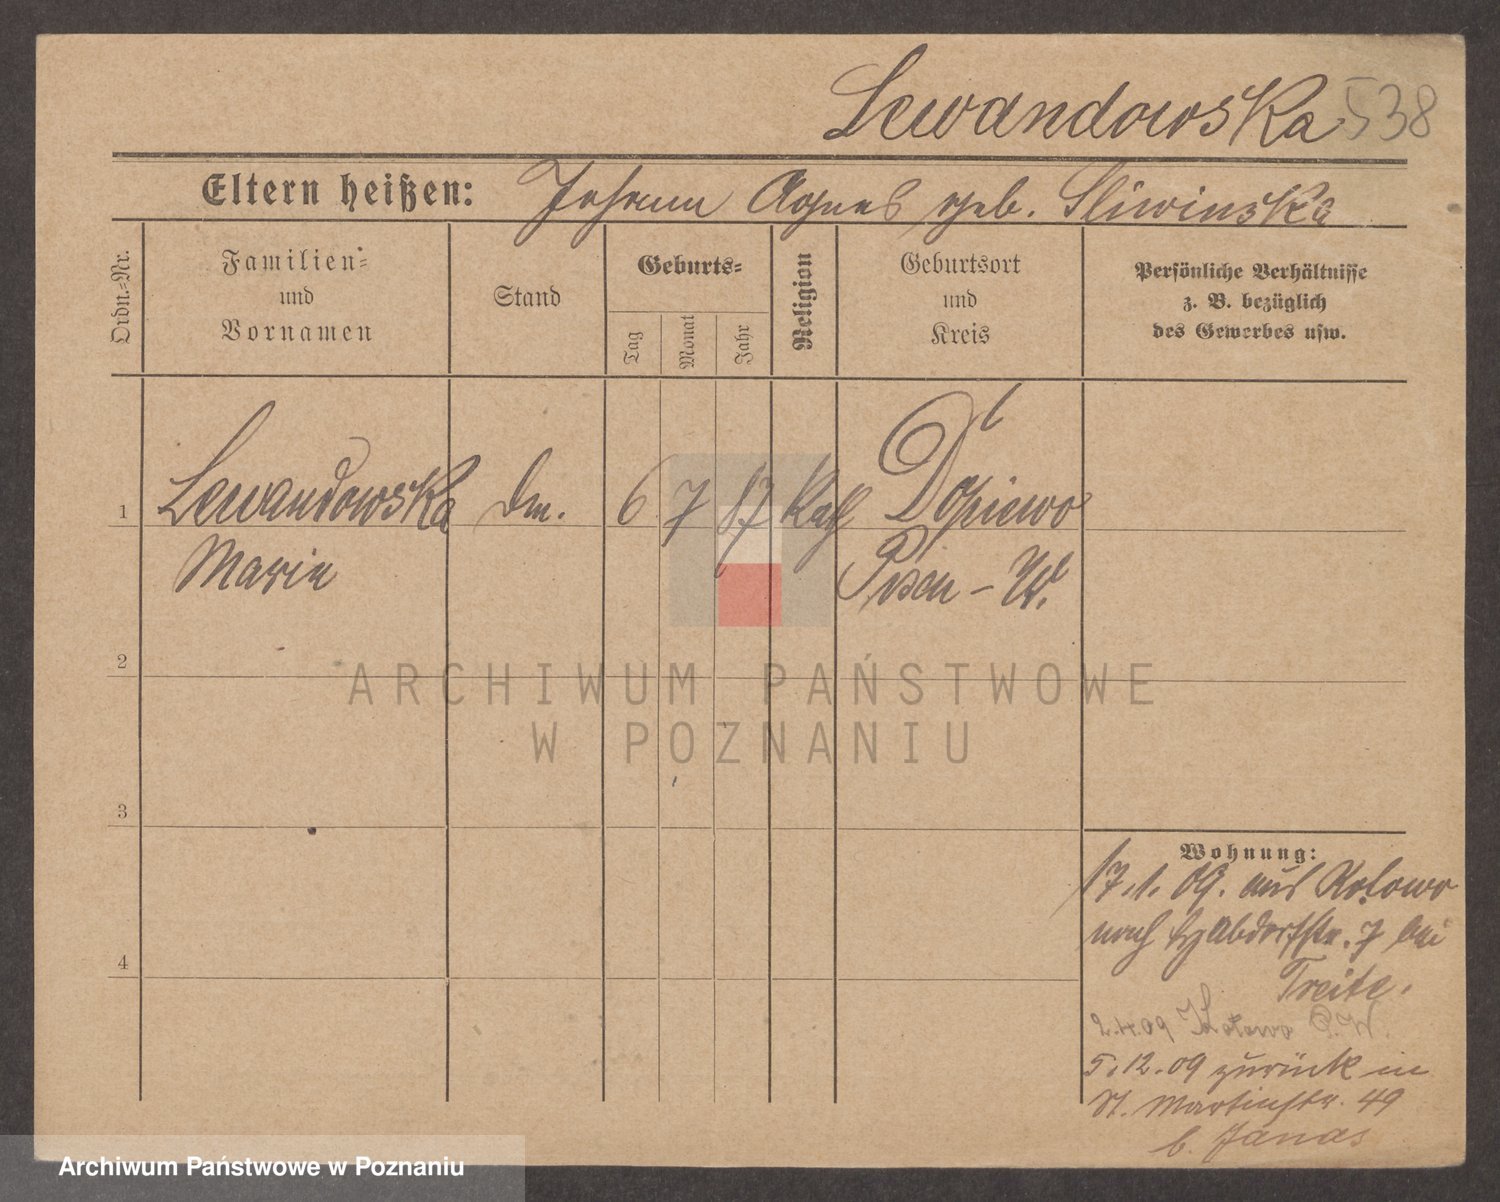 Lewandowska 538
Eltern heißen: Johann Agnes geb. Sliwinska
Ordn.-Nr.
Familien-
und
Vornamen
Stand
Geburts-
Tag
Monat
Jahr
Religion
Geburtsort
und
Kreis
Persönliche Verhältnisse
z. B. bezüglich
des Gewerbes usw.
1 Lewandowska Dm. 6 7 87 Kath Dopiewo
Marie Posen-W.
2
3
4
Wohnung:
17.1.09. aus Kotowo
nach 7 bei
Treite.
2.4.09 Kotowo P.W.
5.12.09 zurück in
St. Martinstr. 49
b. Janas
ARCHIWUM PAŃSTWOWE
W POZNANIU
Archiwum Państwowe w Poznaniu